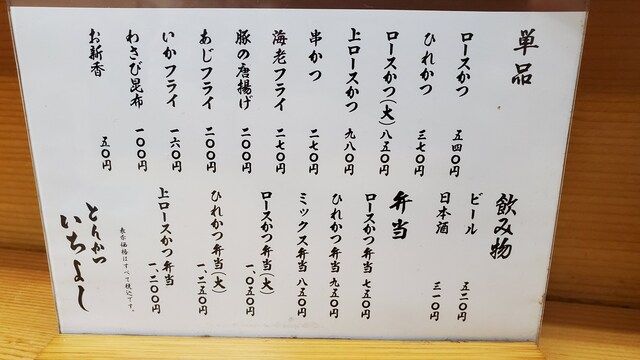 単品
ロースかつ 五四〇円
ひれかつ 三七〇円
ロースかつ(大) 八五〇円
上ロースかつ 九八〇円
串かつ 二七〇円
海老フライ 二七〇円
豚の唐揚げ 二〇〇円
あじフライ 二〇〇円
いかフライ 一六〇円
わさび昆布 一〇〇円
お新香 五〇円
飲み物
ビール 五二〇円
日本酒 三一〇円
弁当
ロースかつ弁当 七五〇円
ひれかつ弁当 九五〇円
ミックス弁当 八五〇円
ロースかつ弁当(大) 一、〇五〇円
ひれかつ弁当(大) 一、二五〇円
上ロースかつ弁当 一、二〇〇円
表示価格はすべて税込です。
とんかつ
いちよし